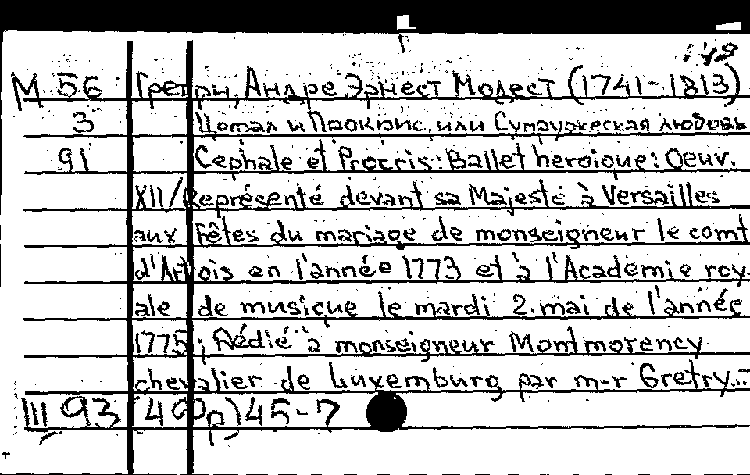 149
М 56 Гретри, Андре Эрнест Модест (1741-1813)
3 Цефал и Прокрис, или Супружеская любовь
91 Cephale et Procris: Ballet heroique: Oeuv.
XII/Représenté devant sa Majesté à Versailles
aux Fêtes du mariage de monseigneur le comt
d'Artois en l'année 1773 et à l'Academie roy-
ale de musique le mardi 2. mai de l'année
1775; Dédié à monseigneur Montmorency
chevalier de Luxemburg par m-r Gretry...
III 93 45-7